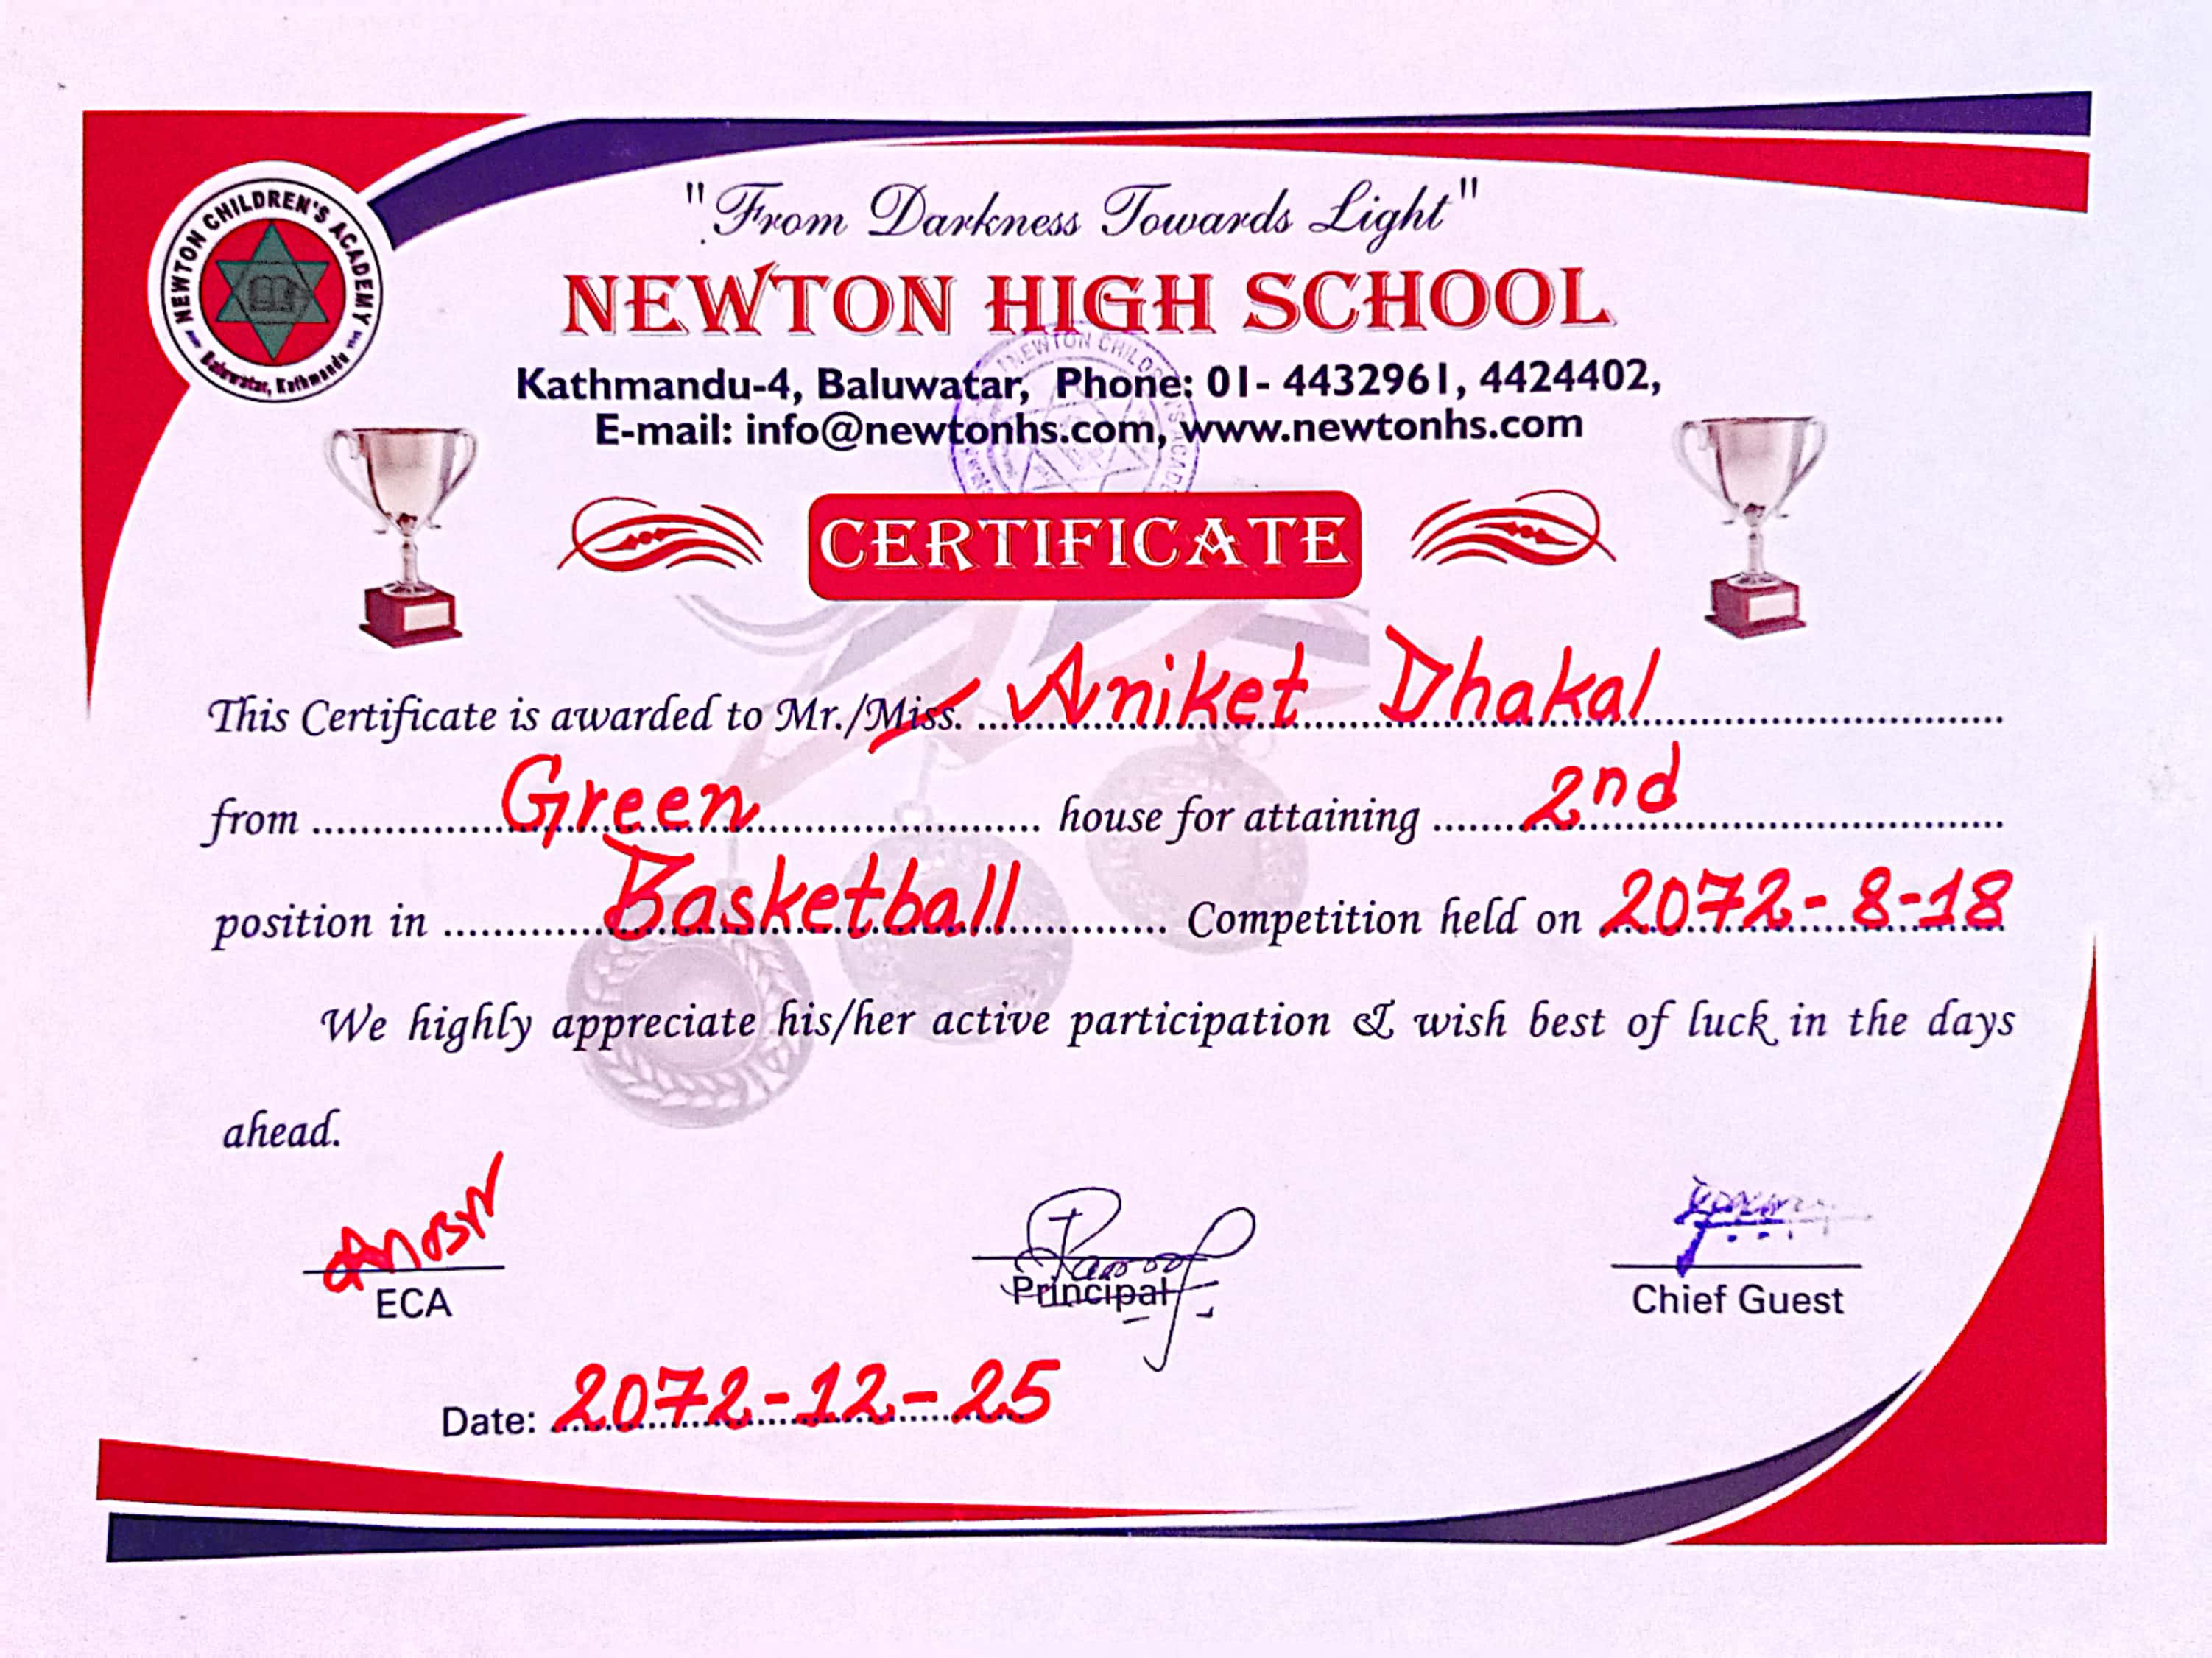 NEWTON CHILDREN'S ACADEMY
Baluwatar, Kathmandu
"From Darkness Towards Light"
NEWTON HIGH SCHOOL
Kathmandu-4, Baluwatar, Phone: 01- 4432961, 4424402,
E-mail: info@newtonhs.com, www.newtonhs.com
NEWTON CHILD
CERTIFICATE
This Certificate is awarded to Mr./Miss. Aniket Dhakal
from Green house for attaining 2nd
position in Basketball Competition held on 2072-8-18
We highly appreciate his/her active participation & wish best of luck in the days
ahead.
ECA
Principal
Chief Guest
Date: 2072-12-25